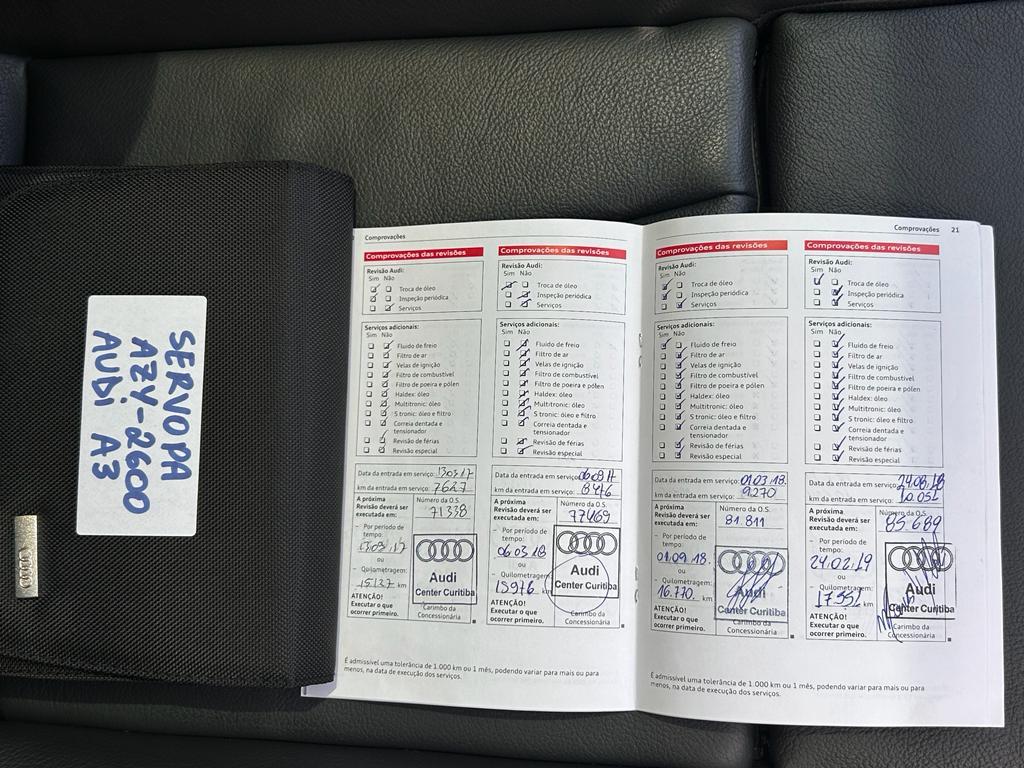 SERVOPA
AZY-2600
AUDi A3
Comprovações
Comprovações das revisões
Revisão Audi:
Sim Não
Troca de óleo
Inspeção periódica
Serviços
Serviços adicionais:
Sim Não
Fluido de freio
Filtro de ar
Velas de ignição
Filtro de combustível
Filtro de poeira e pólen
Haldex: óleo
Multitronic: óleo
S tronic: óleo e filtro
Correia dentada e
tensionador
Revisão de férias
Revisão especial
Data da entrada em serviço:
km da entrada em serviço: 7627
A próxima
Revisão deverá ser
executada em:
Número da O.S.
71338
– Por período de
tempo:
ou
– Quilometragem:
15127 km
ATENÇÃO!
Executar o que
ocorrer primeiro.
Audi
Center Curitiba
Carimbo da
Concessionária
Comprovações das revisões
Revisão Audi:
Sim Não
Troca de óleo
Inspeção periódica
Serviços
Serviços adicionais:
Sim Não
Fluido de freio
Filtro de ar
Velas de ignição
Filtro de combustível
Filtro de poeira e pólen
Haldex: óleo
Multitronic: óleo
S tronic: óleo e filtro
Correia dentada e
tensionador
Revisão de férias
Revisão especial
Data da entrada em serviço: 06 09 17
km da entrada em serviço: 8476
A próxima
Revisão deverá ser
executada em:
Número da O.S.
77469
– Por período de
tempo:
06 03 18
ou
– Quilometragem:
15976 km
ATENÇÃO!
Executar o que
ocorrer primeiro.
Audi
Center Curitiba
Carimbo da
Concessionária
É admissível uma tolerância de 1.000 km ou 1 mês, podendo variar para mais ou para
menos, na data de execução dos serviços.
Comprovações 21
Comprovações das revisões
Revisão Audi:
Sim Não
Troca de óleo
Inspeção periódica
Serviços
Serviços adicionais:
Sim Não
Fluido de freio
Filtro de ar
Velas de ignição
Filtro de combustível
Filtro de poeira e pólen
Haldex: óleo
Multitronic: óleo
S tronic: óleo e filtro
Correia dentada e
tensionador
Revisão de férias
Revisão especial
Data da entrada em serviço: 01.03.18.
km da entrada em serviço: 9.270
A próxima
Revisão deverá ser
executada em:
Número da O.S.
81.811
– Por período de
tempo:
01.09.18.
ou
– Quilometragem:
16.770 km
ATENÇÃO!
Executar o que
ocorrer primeiro.
Audi
Center Curitiba
Carimbo da
Concessionária
Comprovações das revisões
Revisão Audi:
Sim Não
Troca de óleo
Inspeção periódica
Serviços
Serviços adicionais:
Sim Não
Fluido de freio
Filtro de ar
Velas de ignição
Filtro de combustível
Filtro de poeira e pólen
Haldex: óleo
Multitronic: óleo
S tronic: óleo e filtro
Correia dentada e
tensionador
Revisão de férias
Revisão especial
Data da entrada em serviço: 24.08.18
km da entrada em serviço: 10.051
A próxima
Revisão deverá ser
executada em:
Número da O.S.
85.689
– Por período de
tempo:
24.02.19
ou
– Quilometragem:
17.551 km
ATENÇÃO!
Executar o que
ocorrer primeiro.
Audi
Center Curitiba
Carimbo da
Concessionária
É admissível uma tolerância de 1.000 km ou 1 mês, podendo variar para mais ou para
menos, na data de execução dos serviços.